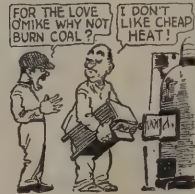 FOR THE LOVE
O'MIKE WHY NOT
BURN COAL?
I DON'T
LIKE CHEAP
HEAT!